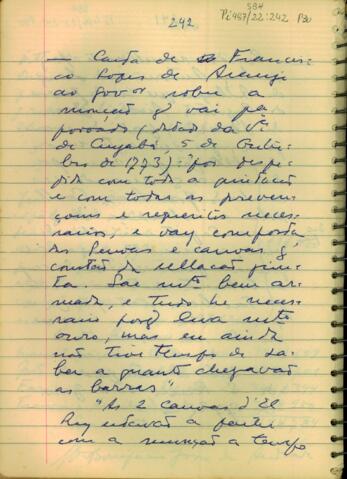 242
SBH
Pi 467/22:242 P30
— Carta de Francis-
co Lopes de Araujo
ao govor sobre a
monção q vai pa
povoado (datada da Va
de Cuyabá, 5 de Outu-
bro de 1773): "foi despe-
dida com toda a quietação
e com todas as preven-
çoens e requesitos neces-
sarios, e vay composta
das pessoas e canoas q'
constão da rellação jun-
ta. Sae mto bem ar-
mada, e tudo he neces-
sario porq leva mto
ouro, mas eu ainda
não tive tempo de sa-
ber a quanto chegavão
as barras"
"As 2 canoas d'El
Rey a partir
com a monção a tempo